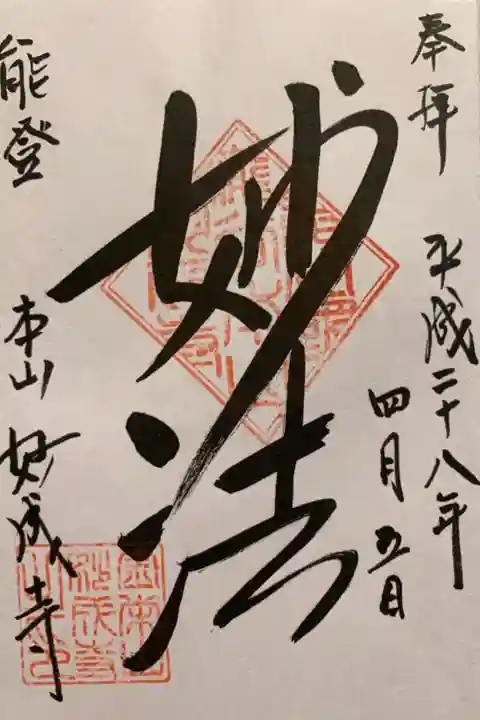 奉拝 平成二十八年
四月五日
妙法
能登 本山 妙成寺